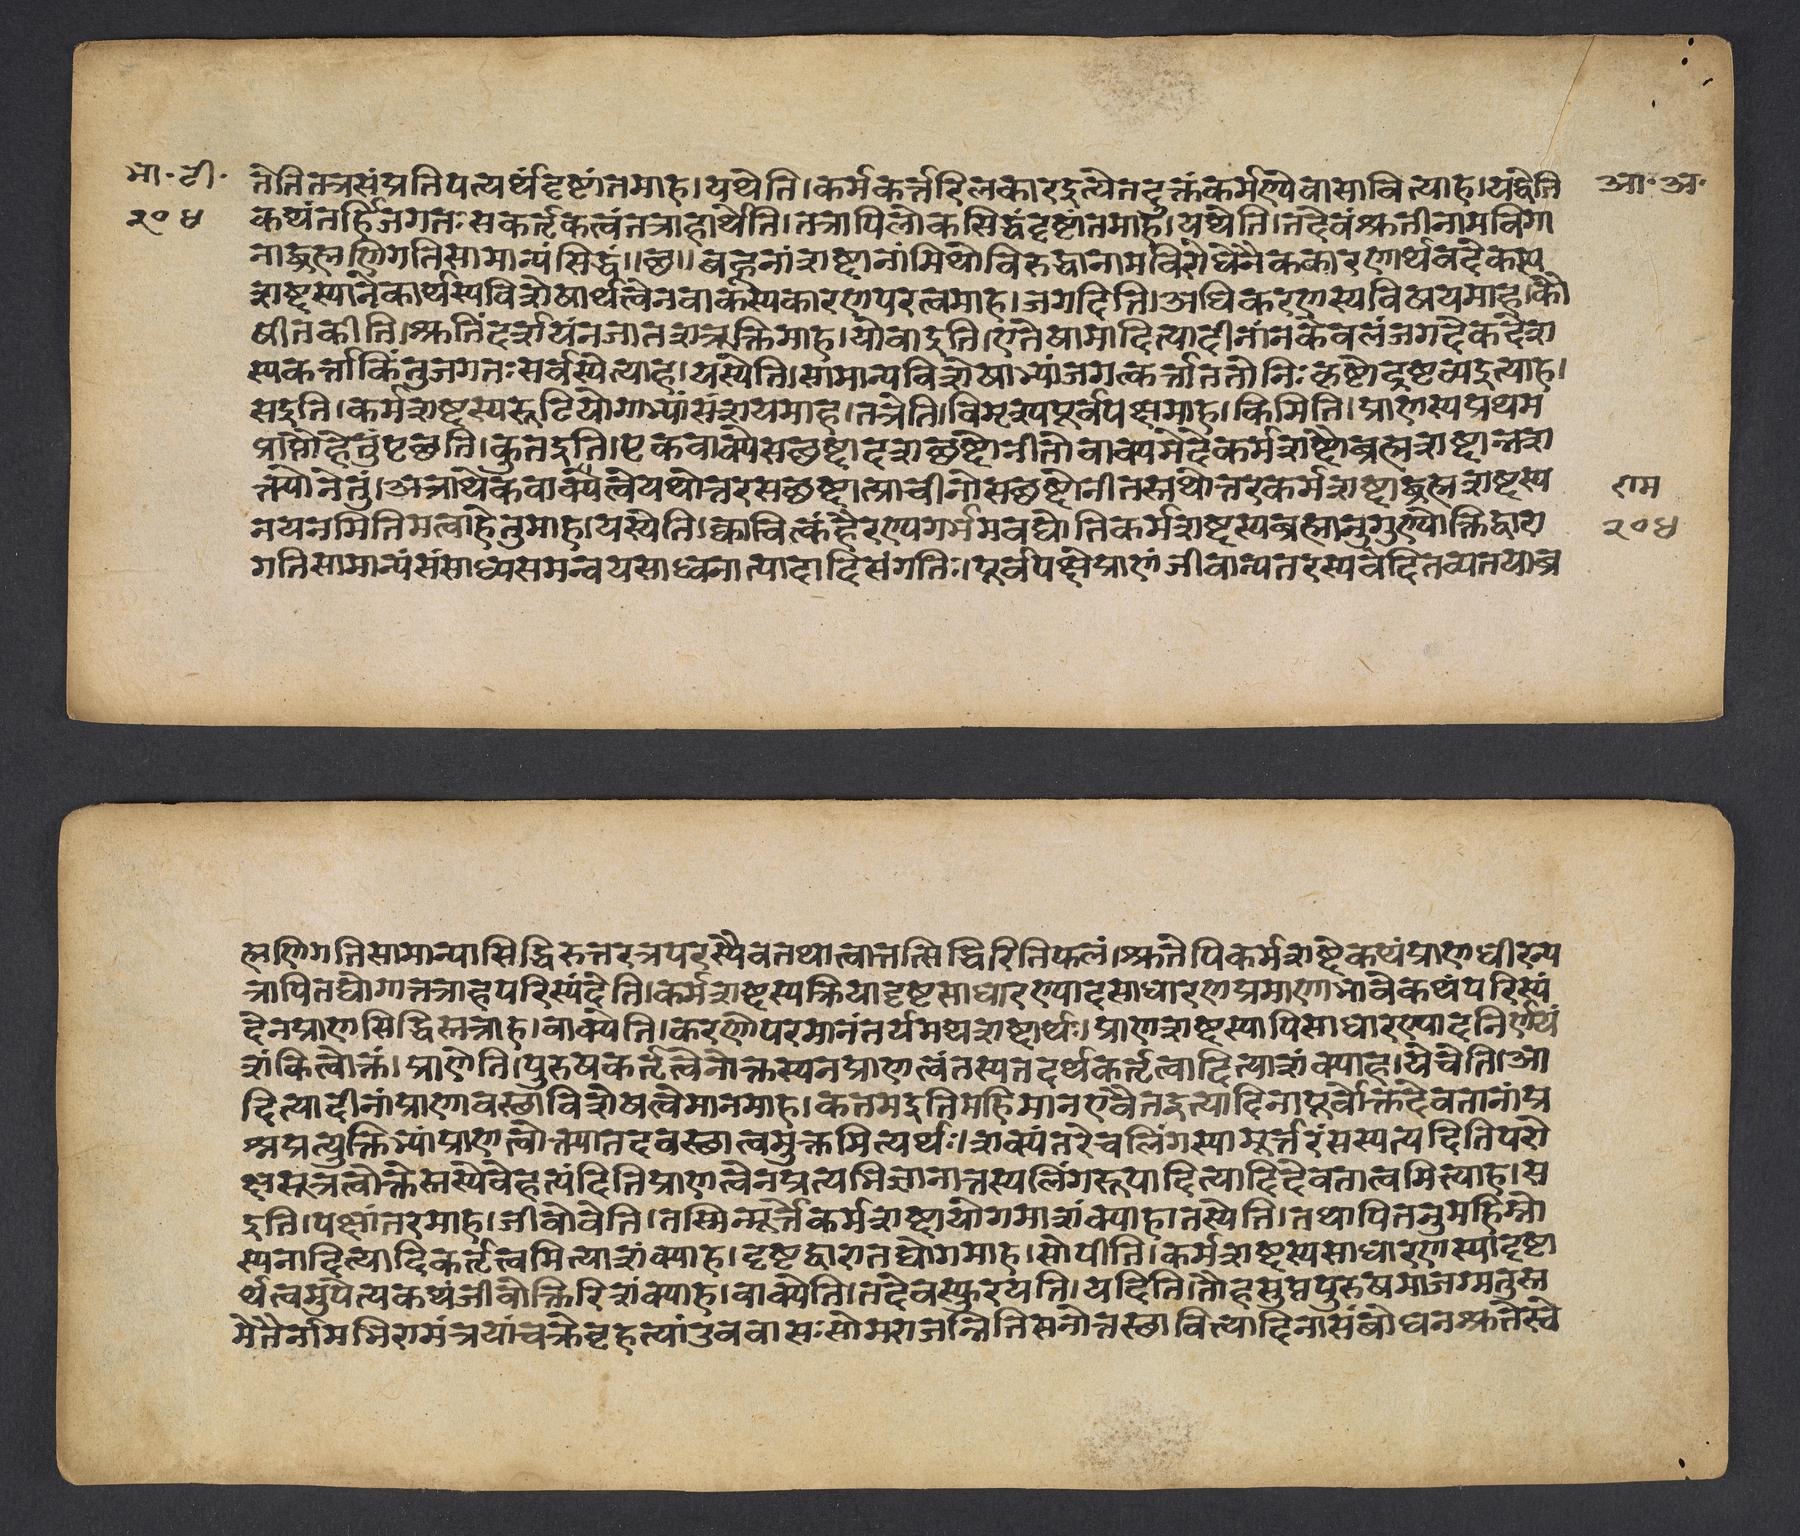 भा॰ टी॰
२०४
आ॰ अ॰
तेतितत्रसंप्रतिपत्यर्थंदृष्टांतमाह।यथेति।कर्मकर्त्तरिलकारइत्येतदुक्तंकर्मण्येवासावित्याह।यद्वेति
कथंतर्हिजगतःसकर्तृकत्वंतत्राहार्थेति।तत्रापिलोकसिद्धंदृष्टांतमाह।यथेति।तदेवंश्रुतीनामविगा
नाद्ब्रह्मणिगतिसामान्यंसिद्धं॥छ॥बहूनांशब्दानांमिथोविरुद्धानामविरोधेनैककारणार्थवदेकस्य
शब्दस्यानेकार्थस्यविशेषार्थत्वेनवाक्यस्यकारणपरत्वमाह।जगदिति।अधिकरणस्यविषयमाह।कौ
षीतकीति।श्रुतिंदर्शयंनजातशत्रूक्तिमाह।योवाइति।एतेषामादित्यादीनांनकेवलंजगदेकदेश
स्यकर्त्ताकिंतुजगतःसर्वस्येत्याह।यस्येति।सामान्यविशेषाभ्यांजगत्कर्त्ताततोनिःकृष्टोद्रष्टव्यइत्याह।
सइति।कर्मशब्दस्यरूढियोगाभ्यांसंशयमाह।तत्रेति।विमृश्यपूर्वपक्षमाह।किमिति।प्राणस्यप्रथम
प्राप्तौहेतुंपृछति।कुतइति।एकवाक्येसछब्दादशछब्दोनीतोवाक्यभेदेकर्मशब्दोब्रह्मशब्दान्नश
क्त्योनेतुं।अत्राथैकवाक्यत्वेयथोत्तरसछब्दात्प्राचीनोसछब्दोनीतस्तथोत्तरकर्मशब्दाद्ब्रह्मशब्दस्य
राम
नयनमितिमत्वाहेतुमाह।यस्येति।क्वाचित्कंहैरण्यगर्भमवद्योतिकर्मशब्दस्यब्रह्मानुगुण्योक्तिद्वारा
२०४
गतिसामान्यंसंसाध्यसमन्वयसाधनात्पादादिसंगतिः।पूर्वपक्षेप्राणंजीवान्यतरस्यवेदितव्यतयाब्र
ह्मणिगतिसामान्यासिद्धिरुत्तरत्रपरस्यैवतथात्वात्तत्सिद्धिरितिफलं।श्रुतेपिकर्मशब्देकथंप्राणधीरन्य
त्रापितद्योगात्तत्राहपरिस्पंदेति।कर्मशब्दस्यक्रियादृष्टसाधारण्यादसाधारणप्रमाणाभावेकथंपरिस्पं
देनप्राणसिद्धिस्तत्राह।वाक्येति।करणोपरमानंतर्यमथशब्दार्थः।प्राणशब्दस्यापिसाधारण्यादनिर्णयं
शंकित्वोक्तं।प्राणेति।पुरुषकर्तृत्वेनोक्तस्यनप्राणत्वंतस्यतदर्थकर्तृत्वादित्याशंक्याह।येचेति।आ
दित्यादीनांप्राणावस्छाविशेषत्वेमानमाह।कतमइतिमहिमानएवैतइत्यादिनापूर्वोक्तदेवतानांप्र
श्नप्रत्युक्तिभ्यांप्राणत्वोक्त्यातदवस्छात्वमुक्तमित्यर्थः।शक्यंतरेचलिंगस्यामूर्त्तरंसस्यत्यदितिपरो
क्षसूत्रत्वोक्तेस्तस्यैवेहत्यंदितिप्राणत्वेनप्रत्यभिज्ञानात्तस्यलिंगरूपादित्यादिदेवतात्वमित्याह।स
इति।पक्षांतरमाह।जीवोवेति।तस्मिन्मूर्त्तेकर्मशब्दायोगमाशंक्याहातस्येति।तथापितनुमहिम्नो
स्यनादित्यादिकर्तृत्वमित्याशंक्याह।दृष्टद्वारातद्योगमाह।सोपीति।कर्मशब्दस्यसाधारणस्यादृष्टा
र्थत्वमुपेत्यकथंजीवोक्तिरिशंक्याह।वाक्येति।तदेवस्फुरयति।यदिति।तौहसुप्तपुरुषमाजग्मतुस्त
मेतैर्नामभिरामंत्रयांचक्रेबृहत्यांउववासःसोमराजन्नितिसनोत्तस्छावित्यादिनासंबोधनश्रुतेस्वे